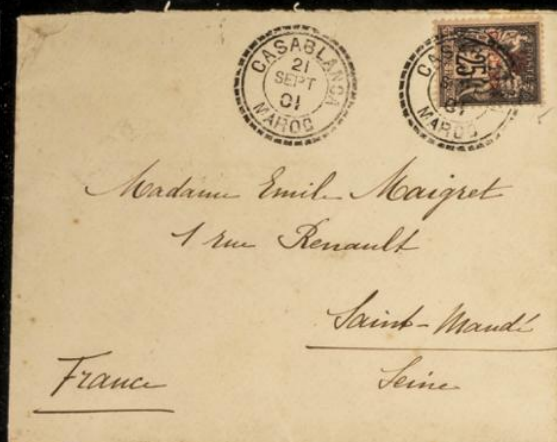 CASABLANCA
21
SEPT
01
MAROC
25
MAROC
Madame Emile Maigret
1 rue Renault
Saint-Mandé
Seine
France